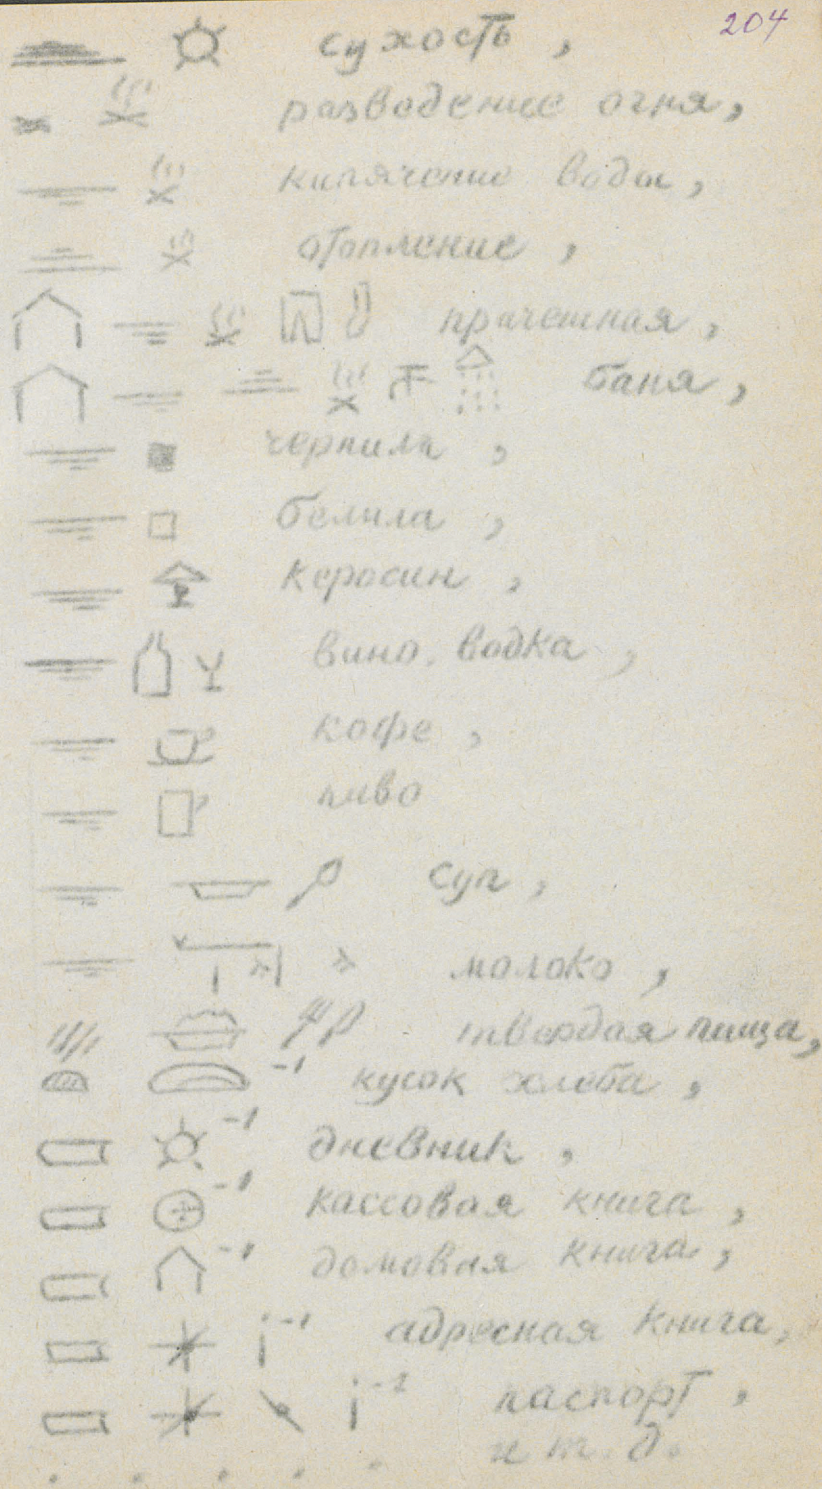 204
сухость,
разведение огня,
кипячение воды,
отопление,
прачешная,
баня,
чернила,
белила,
керосин,
вино. водка,
кофе,
пиво
суп,
молоко,
твердая пища,
-1 кусок хлеба,
-1 дневник,
-1 кассовая книга,
-1 домовая книга,
-1 адресная книга,
-2 паспорт,
и т. д.